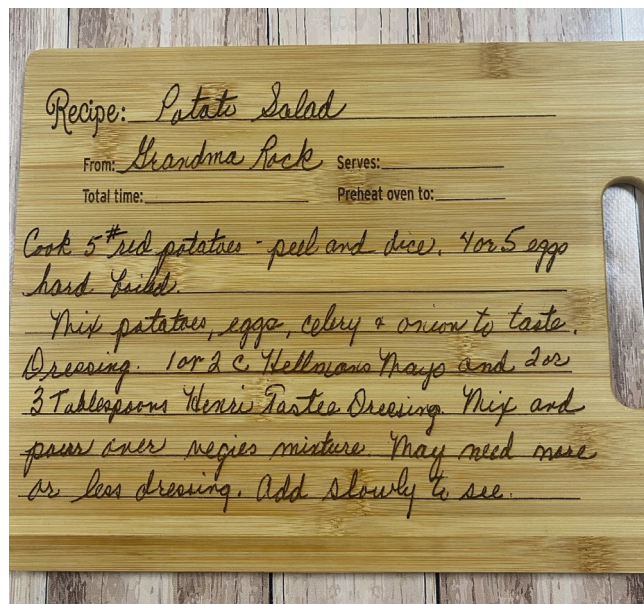 Recipe: Potato Salad
From: Grandma Rock Serves:
Total time: Preheat oven to:
Cook 5# red potatoes - peel and dice. 4 or 5 eggs
hard boiled.
Mix potatoes, eggs, celery & onion to taste.
Dressing. 1 or 2 c Hellmans Mayo and 2 or
3 Tablespoons Henri Tastee Dressing. Mix and
pour over vegies mixture. May need more
or less dressing. Add slowly to see.